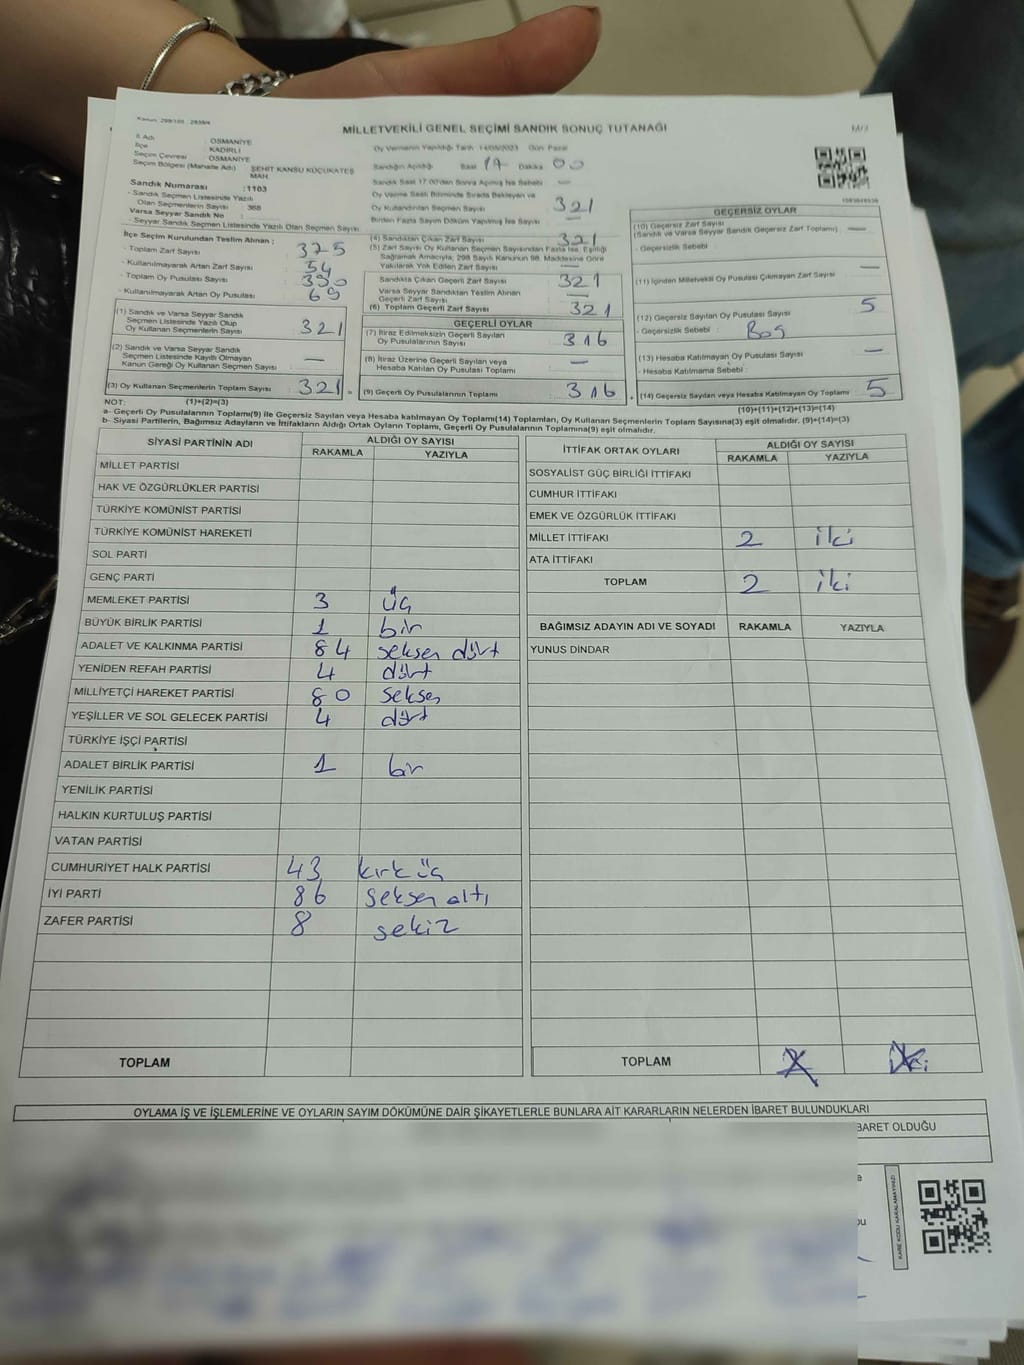 MİLLETVEKİLİ GENEL SEÇİMİ SANDIK SONUÇ TUTANAĞI
İl Adı : OSMANİYE
İlçe : KADİRLİ
Seçim Çevresi : OSMANİYE
Seçim Bölgesi (Mahalle Adı) : ŞEHİT KANSU KÜÇÜKATEŞ MAH.
Sandık Numarası : 1103
- Sandık Seçmen Listesinde Yazılı
Olan Seçmenlerin Sayısı : 368
Varsa Seyyar Sandık No :
- Seyyar Sandık Seçmen Listesinde Yazılı Olan Seçmenlerin Sayısı :
İlçe Seçim Kurulundan Teslim Alınan ;
- Toplam Zarf Sayısı : 375
- Kullanılmayarak Artan Zarf Sayısı : 54
- Toplam Oy Pusulası Sayısı : 390
- Kullanılmayarak Artan Oy Pusulası : 69
(1) Sandık ve Varsa Seyyar Sandık
Seçmen Listesinde Yazılı Olup
Oy Kullanan Seçmenlerin Sayısı : 321
(2) Sandık ve Varsa Seyyar Sandık
Seçmen Listesinde Kayıtlı Olmayan
Kanun Gereği Oy Kullanan Seçmen Sayısı : —
(3) Oy Kullanan Seçmenlerin Toplam Sayısı : 321
Oy Vermenin Yapıldığı Tarih : 14/05/2023 Gün Pazar
Sandığın Açıldığı Saat 17 Dakika 00
Sandık Saat 17.00'den Sonra Açılmış İse Sebebi : —
Oy Verme Saati Bitiminde Sırada Bekleyen ve
Oy Kullandırılan Seçmen Sayısı : 321
Birden Fazla Sayım Döküm Yapılmış İse Sayısı : —
(4) Sandıktan Çıkan Zarf Sayısı : 321
(5) Zarf Sayısı Oy Kullanan Seçmen Sayısından Fazla İse, Eşitliği
Sağlamak Amacıyla, 298 Sayılı Kanunun 98. Maddesine Göre
Yakılarak Yok Edilen Zarf Sayısı : —
Sandıkta Çıkan Geçerli Zarf Sayısı : 321
Varsa Seyyar Sandıktan Teslim Alınan
Geçerli Zarf Sayısı : —
(6) Toplam Geçerli Zarf Sayısı : 321
GEÇERLİ OYLAR
(7) İtiraz Edilmeksizin Geçerli Sayılan
Oy Pusulalarının Sayısı : 316
(8) İtiraz Üzerine Geçerli Sayılan veya
Hesaba Katılan Oy Pusulası Toplamı : —
(9) Geçerli Oy Pusulalarının Toplamı : 316
GEÇERSİZ OYLAR
(10) Geçersiz Zarf Sayısı
(Sandık ve Varsa Seyyar Sandık Geçersiz Zarf Toplamı) : —
- Geçersizlik Sebebi :
(11) İçinden Milletvekili Oy Pusulası Çıkmayan Zarf Sayısı : —
(12) Geçersiz Sayılan Oy Pusulası Sayısı : 5
- Geçersizlik Sebebi : Boş
(13) Hesaba Katılmayan Oy Pusulası Sayısı : —
- Hesaba Katılmama Sebebi :
(14) Geçersiz Sayılan veya Hesaba Katılmayan Oy Toplamı : 5
NOT: (1)+(2)=(3) (10)+(11)+(12)+(13)=(14)
a- Geçerli Oy Pusulalarının Toplamı(9) ile Geçersiz Sayılan veya Hesaba katılmayan Oy Toplamı(14) Toplamları, Oy Kullanan Seçmenlerin Toplam Sayısına(3) eşit olmalıdır. (9)+(14)=(3)
b- Siyasi Partilerin, Bağımsız Adayların ve İttifakların Aldığı Ortak Oyların Toplamı, Geçerli Oy Pusulalarının Toplamına(9) eşit olmalıdır.
SİYASİ PARTİNİN ADI ALDIĞI OY SAYISI
RAKAMLA YAZIYLA
MİLLET PARTİSİ
HAK VE ÖZGÜRLÜKLER PARTİSİ
TÜRKİYE KOMÜNİST PARTİSİ
TÜRKİYE KOMÜNİST HAREKETİ
SOL PARTİ
GENÇ PARTİ
MEMLEKET PARTİSİ 3 üç
BÜYÜK BİRLİK PARTİSİ 1 bir
ADALET VE KALKINMA PARTİSİ 84 seksen dört
YENİDEN REFAH PARTİSİ 4 dört
MİLLİYETÇİ HAREKET PARTİSİ 80 seksen
YEŞİLLER VE SOL GELECEK PARTİSİ 4 dört
TÜRKİYE İŞÇİ PARTİSİ
ADALET BİRLİK PARTİSİ 1 bir
YENİLİK PARTİSİ
HALKIN KURTULUŞ PARTİSİ
VATAN PARTİSİ
CUMHURİYET HALK PARTİSİ 43 kırk üç
İYİ PARTİ 86 seksen altı
ZAFER PARTİSİ 8 sekiz
TOPLAM
İTTİFAK ORTAK OYLARI ALDIĞI OY SAYISI
RAKAMLA YAZIYLA
SOSYALİST GÜÇ BİRLİĞİ İTTİFAKI
CUMHUR İTTİFAKI
EMEK VE ÖZGÜRLÜK İTTİFAKI
MİLLET İTTİFAKI 2 iki
ATA İTTİFAKI
TOPLAM 2 iki
BAĞIMSIZ ADAYIN ADI VE SOYADI RAKAMLA YAZIYLA
YUNUS DİNDAR
TOPLAM 2 iki
OYLAMA İŞ VE İŞLEMLERİNE VE OYLARIN SAYIM DÖKÜMÜNE DAİR ŞİKAYETLERLE BUNLARA AİT KARARLARIN NELERDEN İBARET BULUNDUKLARI
BARET OLDUĞU
KARE KODU KARALAMAYINIZ!